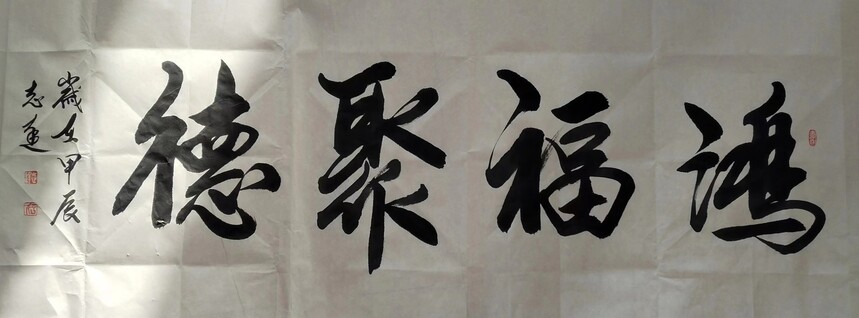 鸿福聚德
歲在甲辰
志逵